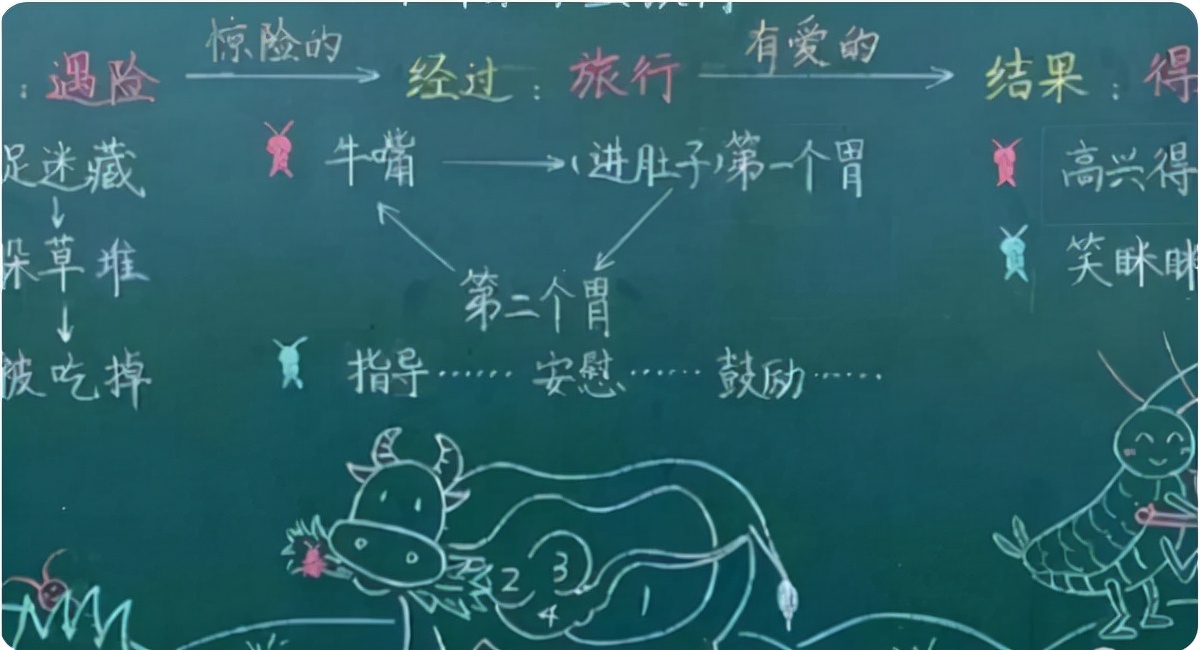 惊险的 有爱的
：遇险 经过：旅行 结果：得
捉迷藏 牛嘴 （进肚子）第一个胃 高兴得
草堆 第二个胃 笑眯眯
被吃掉 指导…… 安慰…… 鼓励……
2 3
4 1